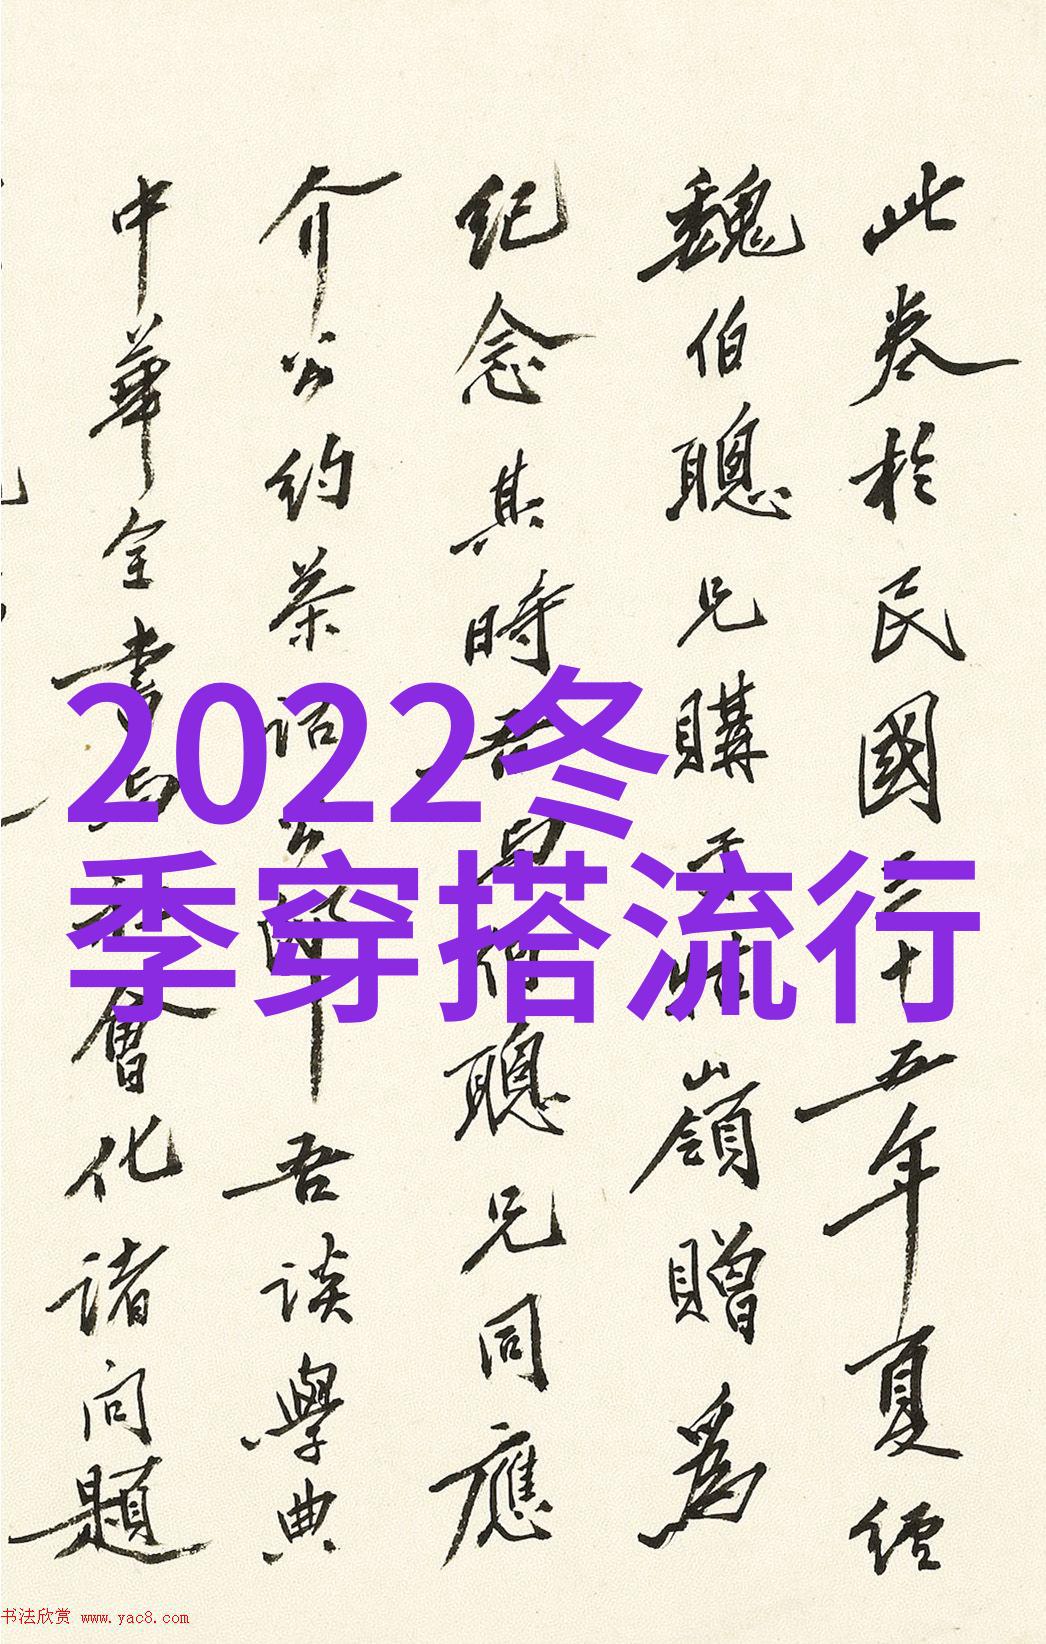 此卷於民國三十五年夏經
魏伯聰兄購于牯嶺贈為
紀念其時吾與伯聰兄同應
介公約茶話公吾談學典
中華全書與會化諸問題
2022冬
季穿搭流行
书法欣赏 www.yac8.com